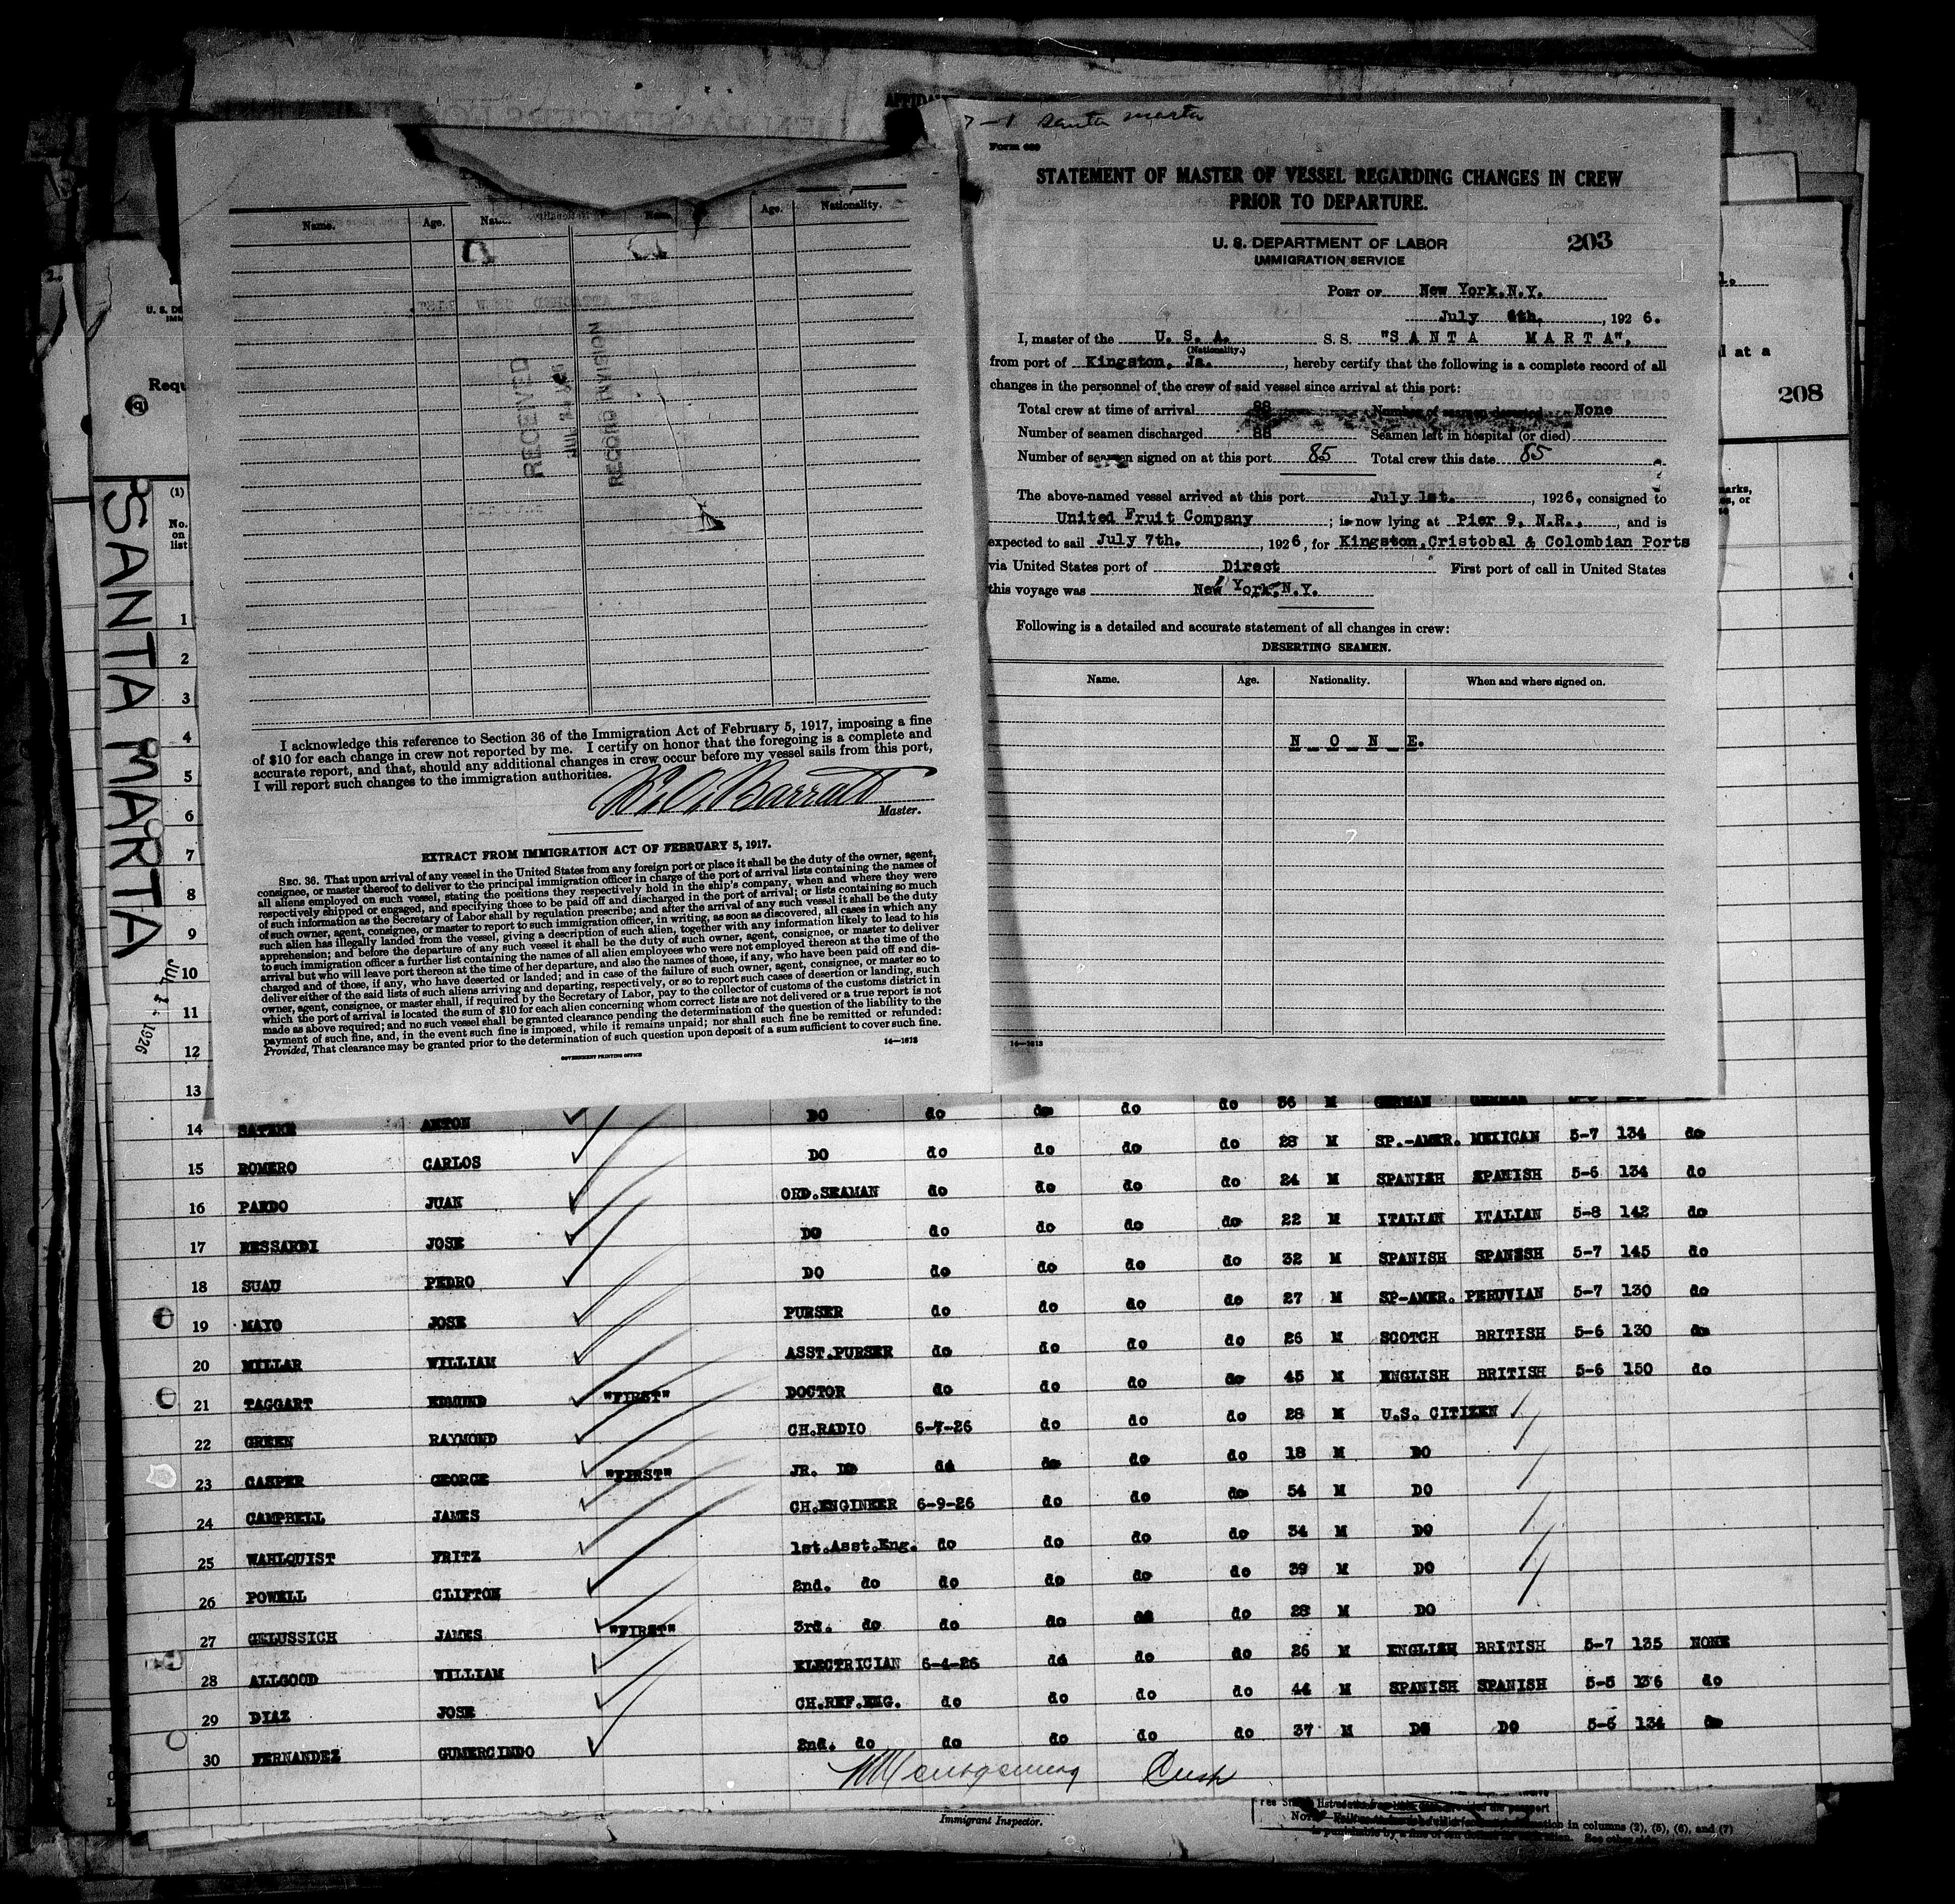 7-1 Santa Marta
STATEMENT OF MASTER OF VESSEL REGARDING CHANGES IN CREW
PRIOR TO DEPARTURE.
U. S. DEPARTMENT OF LABOR
IMMIGRATION SERVICE
203
PORT OF New York.N.Y.
July 6th. , 1926.
I, master of the U. S. A. S. S. "S A N T A M A R T A",
(Nationality.)
from port of Kingston, Ja. , hereby certify that the following is a complete record of all
changes in the personnel of the crew of said vessel since arrival at this port:
Total crew at time of arrival 88 Number of seamen deserted None
Number of seamen discharged 88 Seamen left in hospital (or died)
Number of seamen signed on at this port 85 Total crew this date 85
The above-named vessel arrived at this port July 1st. , 1926, consigned to
United Fruit Company ; is now lying at Pier 9, N.R., , and is
expected to sail July 7th. , 1926, for Kingston,Cristobal & Colombian Ports
via United States port of Direct First port of call in United States
this voyage was New York,N.Y.
Following is a detailed and accurate statement of all changes in crew:
DESERTING SEAMEN.
Name. Age. Nationality. When and where signed on.
N O N E.
14—1613
Name. Age. Name. Age. Nationality.
RECEIVED
RECORD DIVISION
I acknowledge this reference to Section 36 of the Immigration Act of February 5, 1917, imposing a fine
of $10 for each change in crew not reported by me. I certify on honor that the foregoing is a complete and
accurate report, and that, should any additional changes in crew occur before my vessel sails from this port,
I will report such changes to the immigration authorities.
Master.
EXTRACT FROM IMMIGRATION ACT OF FEBRUARY 5, 1917.
SEC. 36. That upon arrival of any vessel in the United States from any foreign port or place it shall be the duty of the owner, agent,
consignee, or master thereof to deliver to the principal immigration officer in charge of the port of arrival lists containing the names of
all aliens employed on such vessel, stating the positions they respectively hold in the ship's company, when and where they were
respectively shipped or engaged, and specifying those to be paid off and discharged in the port of arrival; or lists containing so much
of such information as the Secretary of Labor shall by regulation prescribe; and after the arrival of any such vessel it shall be the duty
of such owner, agent, consignee, or master to report to such immigration officer, in writing, as soon as discovered, all cases in which any
such alien has illegally landed from the vessel, giving a description of such alien, together with any information likely to lead to his
apprehension; and before the departure of any such vessel it shall be the duty of such owner, agent, consignee, or master to deliver
to such immigration officer a further list containing the names of all alien employees who were not employed thereon at the time of the
arrival but who will leave port thereon at the time of her departure, and also the names of those, if any, who have been paid off and dis-
charged and of those, if any, who have deserted or landed; and in case of the failure of such owner, agent, consignee, or master so to
deliver either of the said lists of such aliens arriving and departing, respectively, or so to report such cases of desertion or landing, such
owner, agent, consignee, or master shall, if required by the Secretary of Labor, pay to the collector of customs of the customs district in
which the port of arrival is located the sum of $10 for each alien concerning whom correct lists are not delivered or a true report is not
made as above required; and no such vessel shall be granted clearance pending the determination of the question of the liability to the
payment of such fine, and, in the event such fine is imposed, while it remains unpaid; nor shall such fine be remitted or refunded:
Provided, That clearance may be granted prior to the determination of such question upon deposit of a sum sufficient to cover such fine.
GOVERNMENT PRINTING OFFICE 14—1613
SANTA MARTA
JUL 1 - 1926
208
d at a
Requ
(1)
No.
on
list
1
2
3
4
5
6
7
8
9
10
11
12
13
14 ANTON DO do do do do 36 M GERMAN GERMAN
15 ROMERO CARLOS DO do do do do 28 M SP.-AMER. MEXICAN 5-7 134 do
16 PARDO JUAN ORD.SEAMAN do do do do 24 M SPANISH SPANISH 5-6 134 do
17 RESSARDI JOSE DO do do do do 22 M ITALIAN ITALIAN 5-8 142 do
18 SUAU PEDRO DO do do do do 32 M SPANISH SPANISH 5-7 145 do
19 MAYO JOSE PURSER do do do do 27 M SP-AMER. PERUVIAN 5-7 130 do
20 MILLAR WILLIAM ASST.PURSER do do do do 26 M SCOTCH BRITISH 5-6 130 do
21 TAGGART EDMUND "FIRST" DOCTOR do do do do 45 M ENGLISH BRITISH 5-6 150 do
22 GREEN RAYMOND CH.RADIO 6-7-26 do do do 28 M U.S. CITIZEN
23 CASPER GEORGE "FIRST" JR. DO do do do do 18 M DO
24 CAMPBELL JAMES CH.ENGINEER 6-9-26 do do do 54 M DO
25 WAHLQUIST FRITZ 1st.Asst.Eng. do do do do 34 M DO
26 POWELL CLIFTON 2nd. do do do do do 39 M DO
27 GELUSSICH JAMES "FIRST" 3rd. do do do do do 28 M DO
28 ALLGOOD WILLIAM ELECTRICIAN 6-4-26 do do do 26 M ENGLISH BRITISH 5-7 135 NONE
29 DIAZ JOSE CH.REF.ENG. do do do do 44 M SPANISH SPANISH 5-5 136 do
30 FERNANDEZ GUMERCINDO 2nd. do do do do do 37 M DO DO 5-6 134 do
Immigrant Inspector.